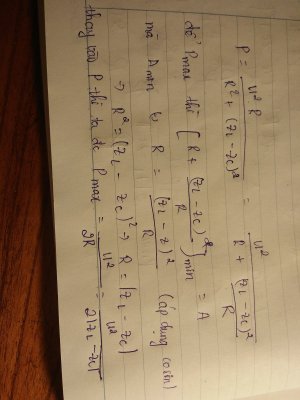 P = U²R / (R² + (Z_L - Z_C)²) = U² / (R + (Z_L - Z_C)²/R)
để Pmax thì [R + (Z_L - Z_C)²/R] min = A
mà Amin ⇔ R = (Z_L - Z)²/R (áp dụng cosin)
→ R² = (Z_L - Z_C)² → R = |Z_L - Z_C|
thay vào P thì ta đc Pmax = U²/2R = U²/2|Z_L - Z_C|